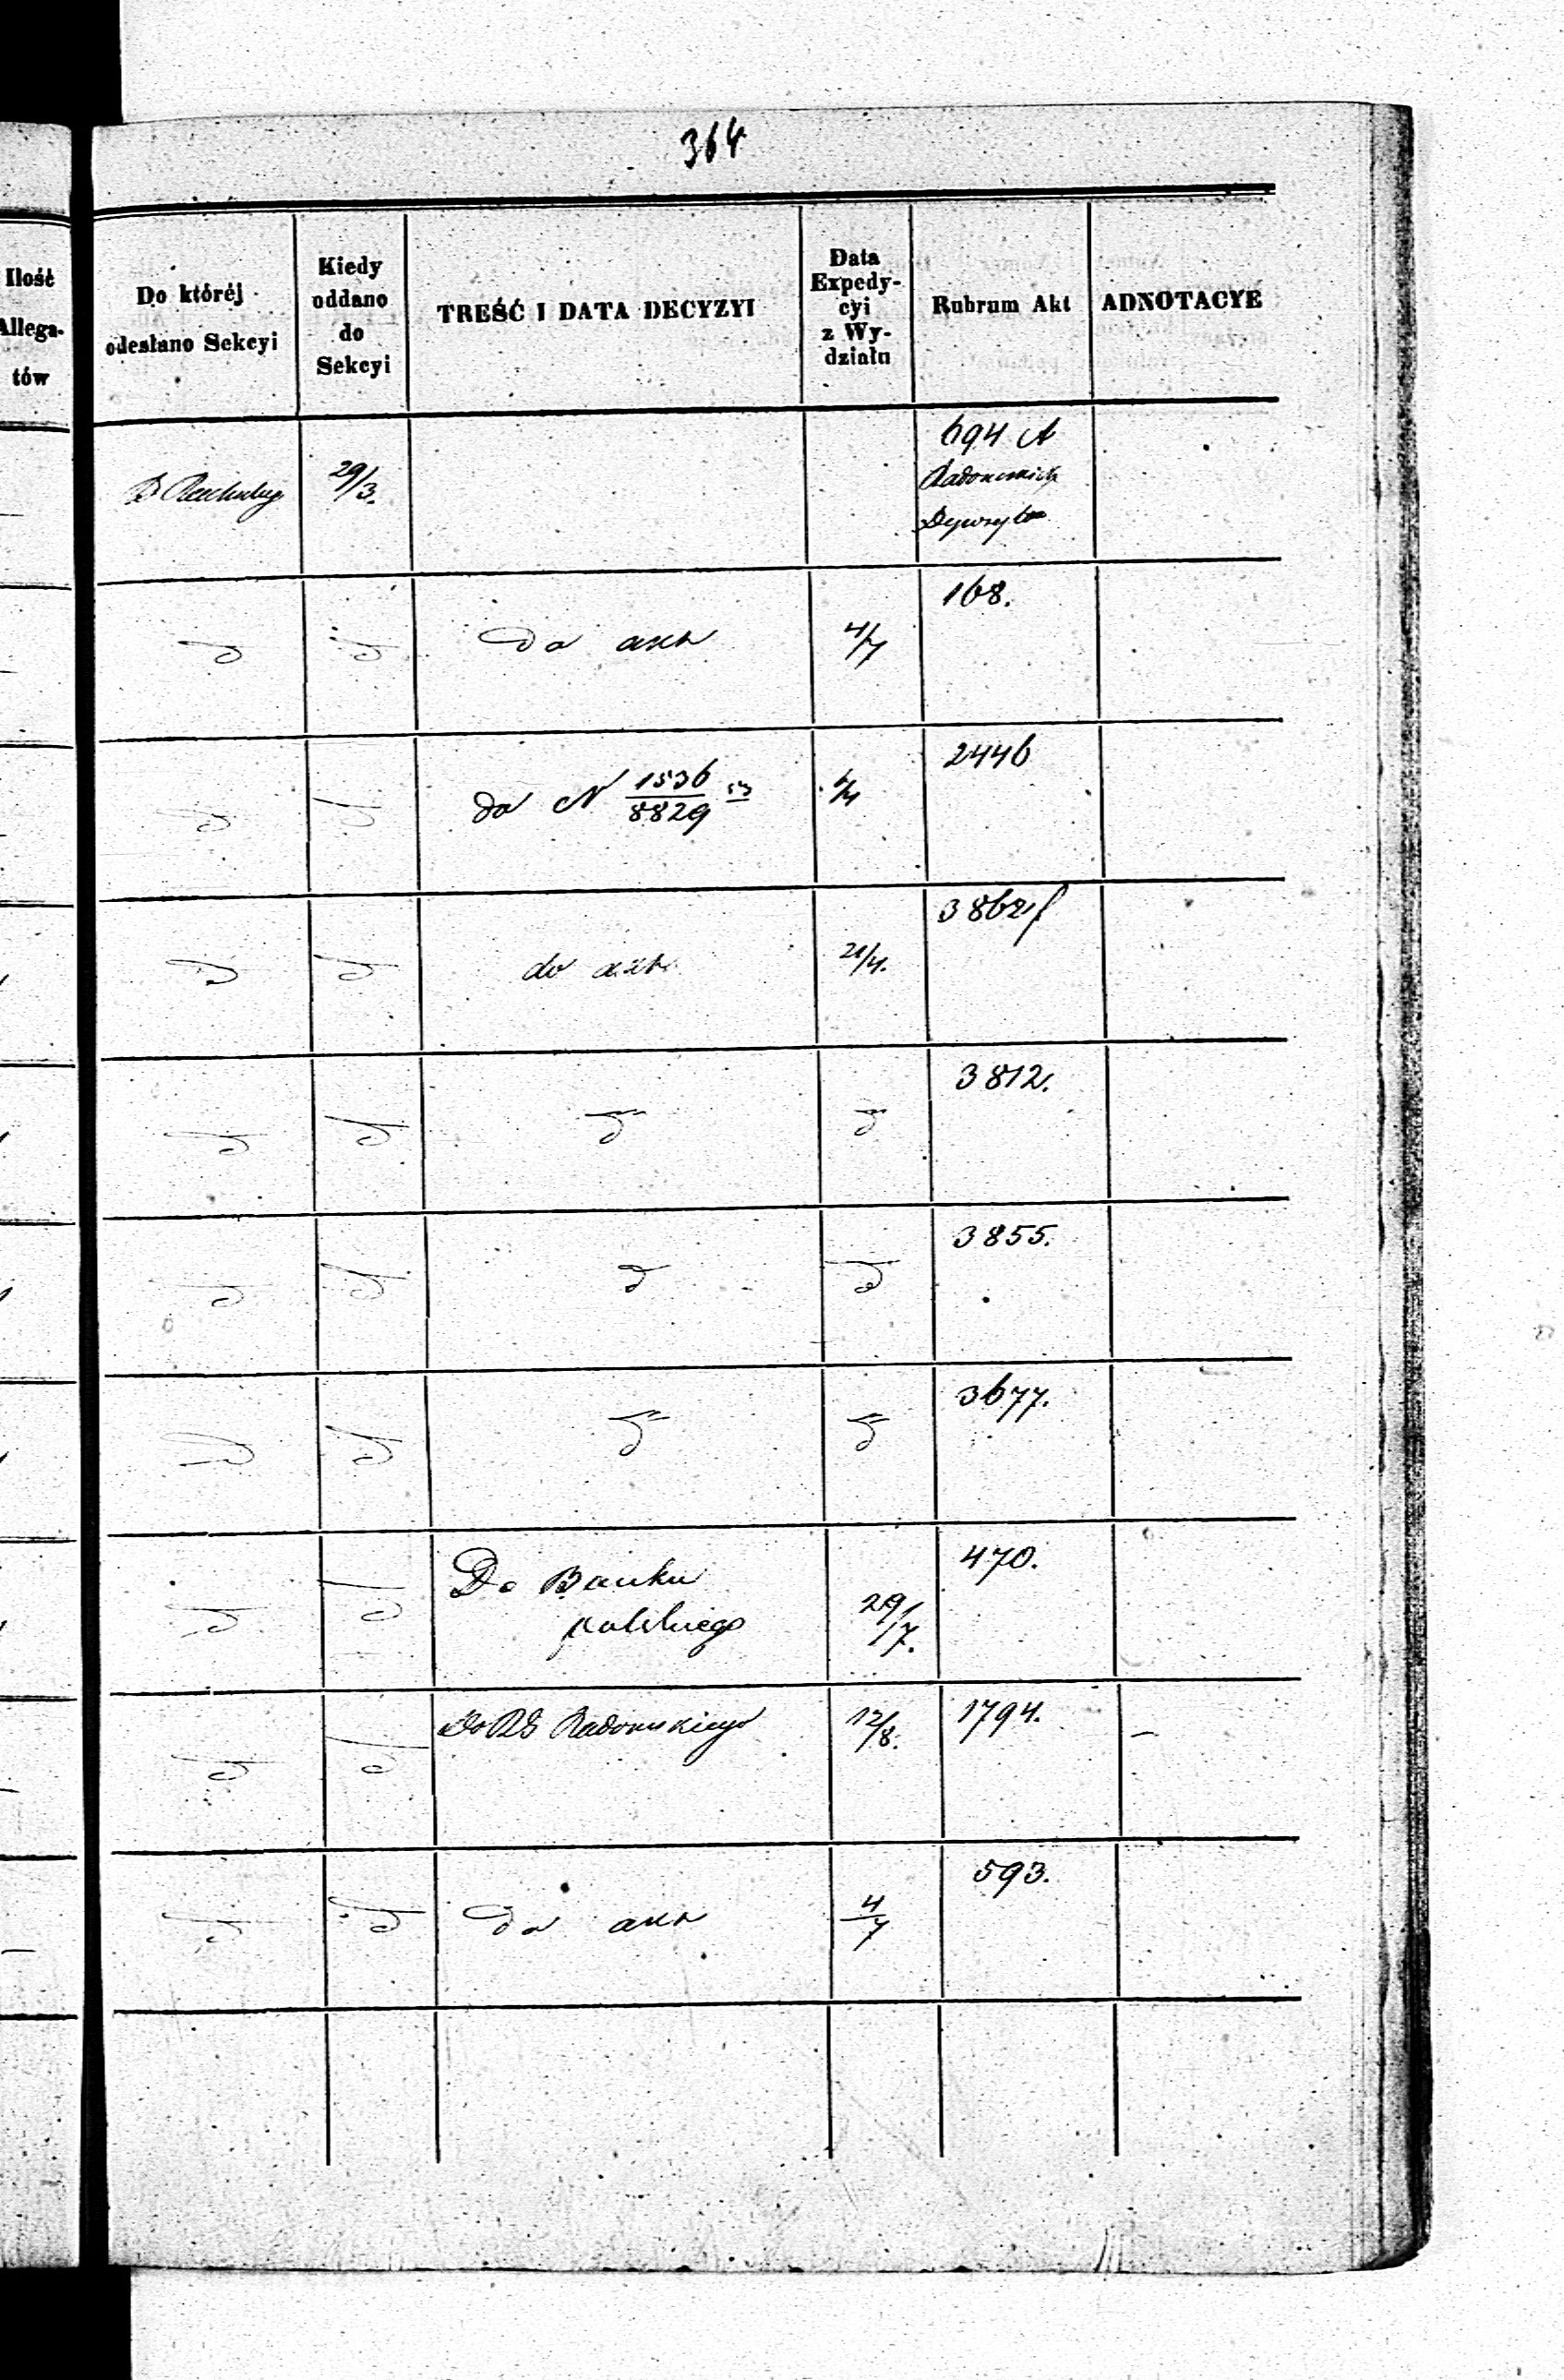 364
Ilość
Allega-
tów
Do któréj
odesłano Sekcyi
Kiedy
oddano
do
Sekcyi
TREŚĆ I DATA DECYZYI
Data
Expedy-
cyi
z Wy-
działu
Rubrum Akt
ADNOTACYE
29/3.
694 A
Radomskich
d
d
Do akt
4/7
168.
d
d
do N 1536/8829
2446
d
d
do akt
21/4.
3862
d
d
d
d
3812.
d
d
d
d
3855.
d
d
d
d
3677.
d
d
Do Banku
polskiego
29/7.
470.
d
d
Do RG Radomskiego
12/8.
1794.
–
d
d
Do akt
4/7
593.